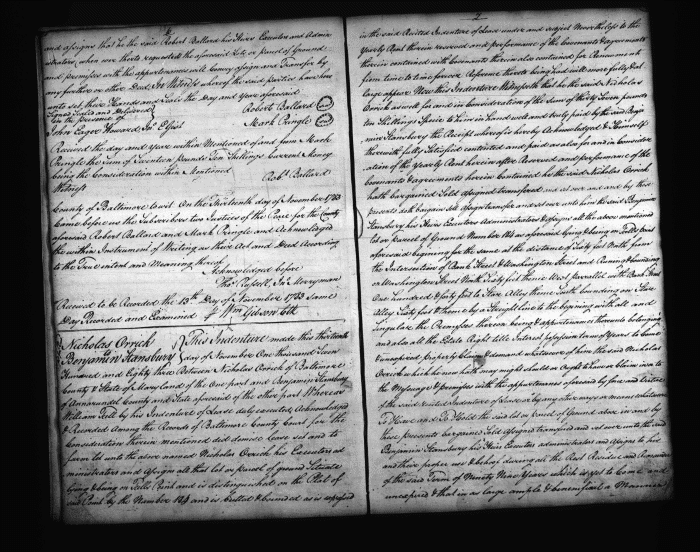 and assigns that he the said Robert Ballard his Heirs Executors and Admin
istrators, when ever thereto requested the aforesaid Lots or parcel of Ground
and premises with the appurtenances will Convey assign and Transfer by
any further or other Deed, In Witness whereof the said parties have here
unto set their Hands and Seals the Day and Year aforesaid
Signed Sealed and Delivered
in the presence of
Robert Ballard Seal
John Eager Howard, Jno
Mark Pringle Seal
Received the day and Year within Mentioned of and from Mark
Pringle the Sum of Seventeen pounds Ten Shillings Current Money
being the Consideration within Mentioned
Witness
Robt Ballard
County of Baltimore to wit On the Thirteenth day of November 1783
Came before us the Subscribers two Justices of the Peace for the County
aforesaid Robert Ballard and Mark Pringle and Acknowledged
the within Instrument of Writing as their Act and Deed According
to the True intent and Meaning thereof
Acknowledged before
Thos Russell, Jno Merryman
Received to be Recorded the 13th Day of November 1783 Same
Day Recorded and Examined Wm Gibson Clk
Nicholas Orrick
Benjamin Hansbury
This Indenture made this thirteenth
day of November One Thousand Seven
Hundred and Eighty three Between Nicholas Orrick of Baltimore
County & State of Maryland of the One part and Benjamin Hansbury
of Annarundel County and State aforesaid of the other part Whereas
William Fell by his Indenture of Lease duly executed, Acknowledged
& Recorded Among the Records of Baltimore County Court for the
Consideration therein mentioned did demise lease set and to
farm let unto the above named Nicholas Orrick his Executors ad
ministrators and Assigns all that lot or parcel of ground Situate
lying & being on Fells Point and is distinguished on the Plat of
said Point by the Number 124 and is butted & bounded as is expressed
2
in the said Recited Indenture of Lease under and subject Nevertheless to the
Yearly Rent therein reserved and performance of the Covenants & agreements
therein contained with Covenants therein also contained for Renewment
from time to time forever Reference thereto being had will more fully & at
large appear Now this Indenture Witnesseth that he the said Nicholas
Orrick as well for and in Consideration of the Sum of thirty Seven pounds
ten Shillings Specie to him in hand well and truly paid by the said Benja
min Hansbury the Receipt whereof is hereby Acknowledged & himself
therewith fully Satisfied contented and paid as also for and in consider
ation of the Yearly Rent herein after Reserved and performance of the
Covenants & agreements herein Contained he the said Nicholas Orrick
hath bargained Sold assigned transferred and set over and by this
presents doth bargain Sell Assign transfer and set over unto him the said Benjamin
Hansbury his Heirs Executors Administrators & Assigns all the above mentioned
lot or parcel of Ground Number 124 as aforesaid lying & being on Fells Point
aforesaid beginning for the same at the distance of Sixty feet North from
the Intersection of Bank Street & Washington Street and Running & bounding
on Washington Street North Sixty feet thence West parallel with Bank Street
One hundred & forty feet to Slave Alley thence South bounding on Slave
Alley Sixty feet & thence by a Straight line to the beginning with all and
singular the Premises thereon being & appurtenances thereunto belonging
and also all the Estate Right title Interest possession term of Years to come
& unexpired property claim & demand whatsoever of him the said Nicholas
Orrick which he now hath may might should or ought to have or claim in or to
the Messuage & premises with the appurtenances aforesaid by force and Virtue
of the said recited Indenture of Lease or by any other ways or means whatsoever
To Have and To Hold the said lot or parcel of Ground above in and by
these presents bargained Sold assigned transferred and set over unto the said
Benjamin Hansbury his Heirs Executors administrators and assigns to his
and their proper use & behoof during all the Rest Residue and Remainder
of the said Term of Ninety Nine Years which is yet to Come and
unexpired & that in as large ample & beneficial a Manner